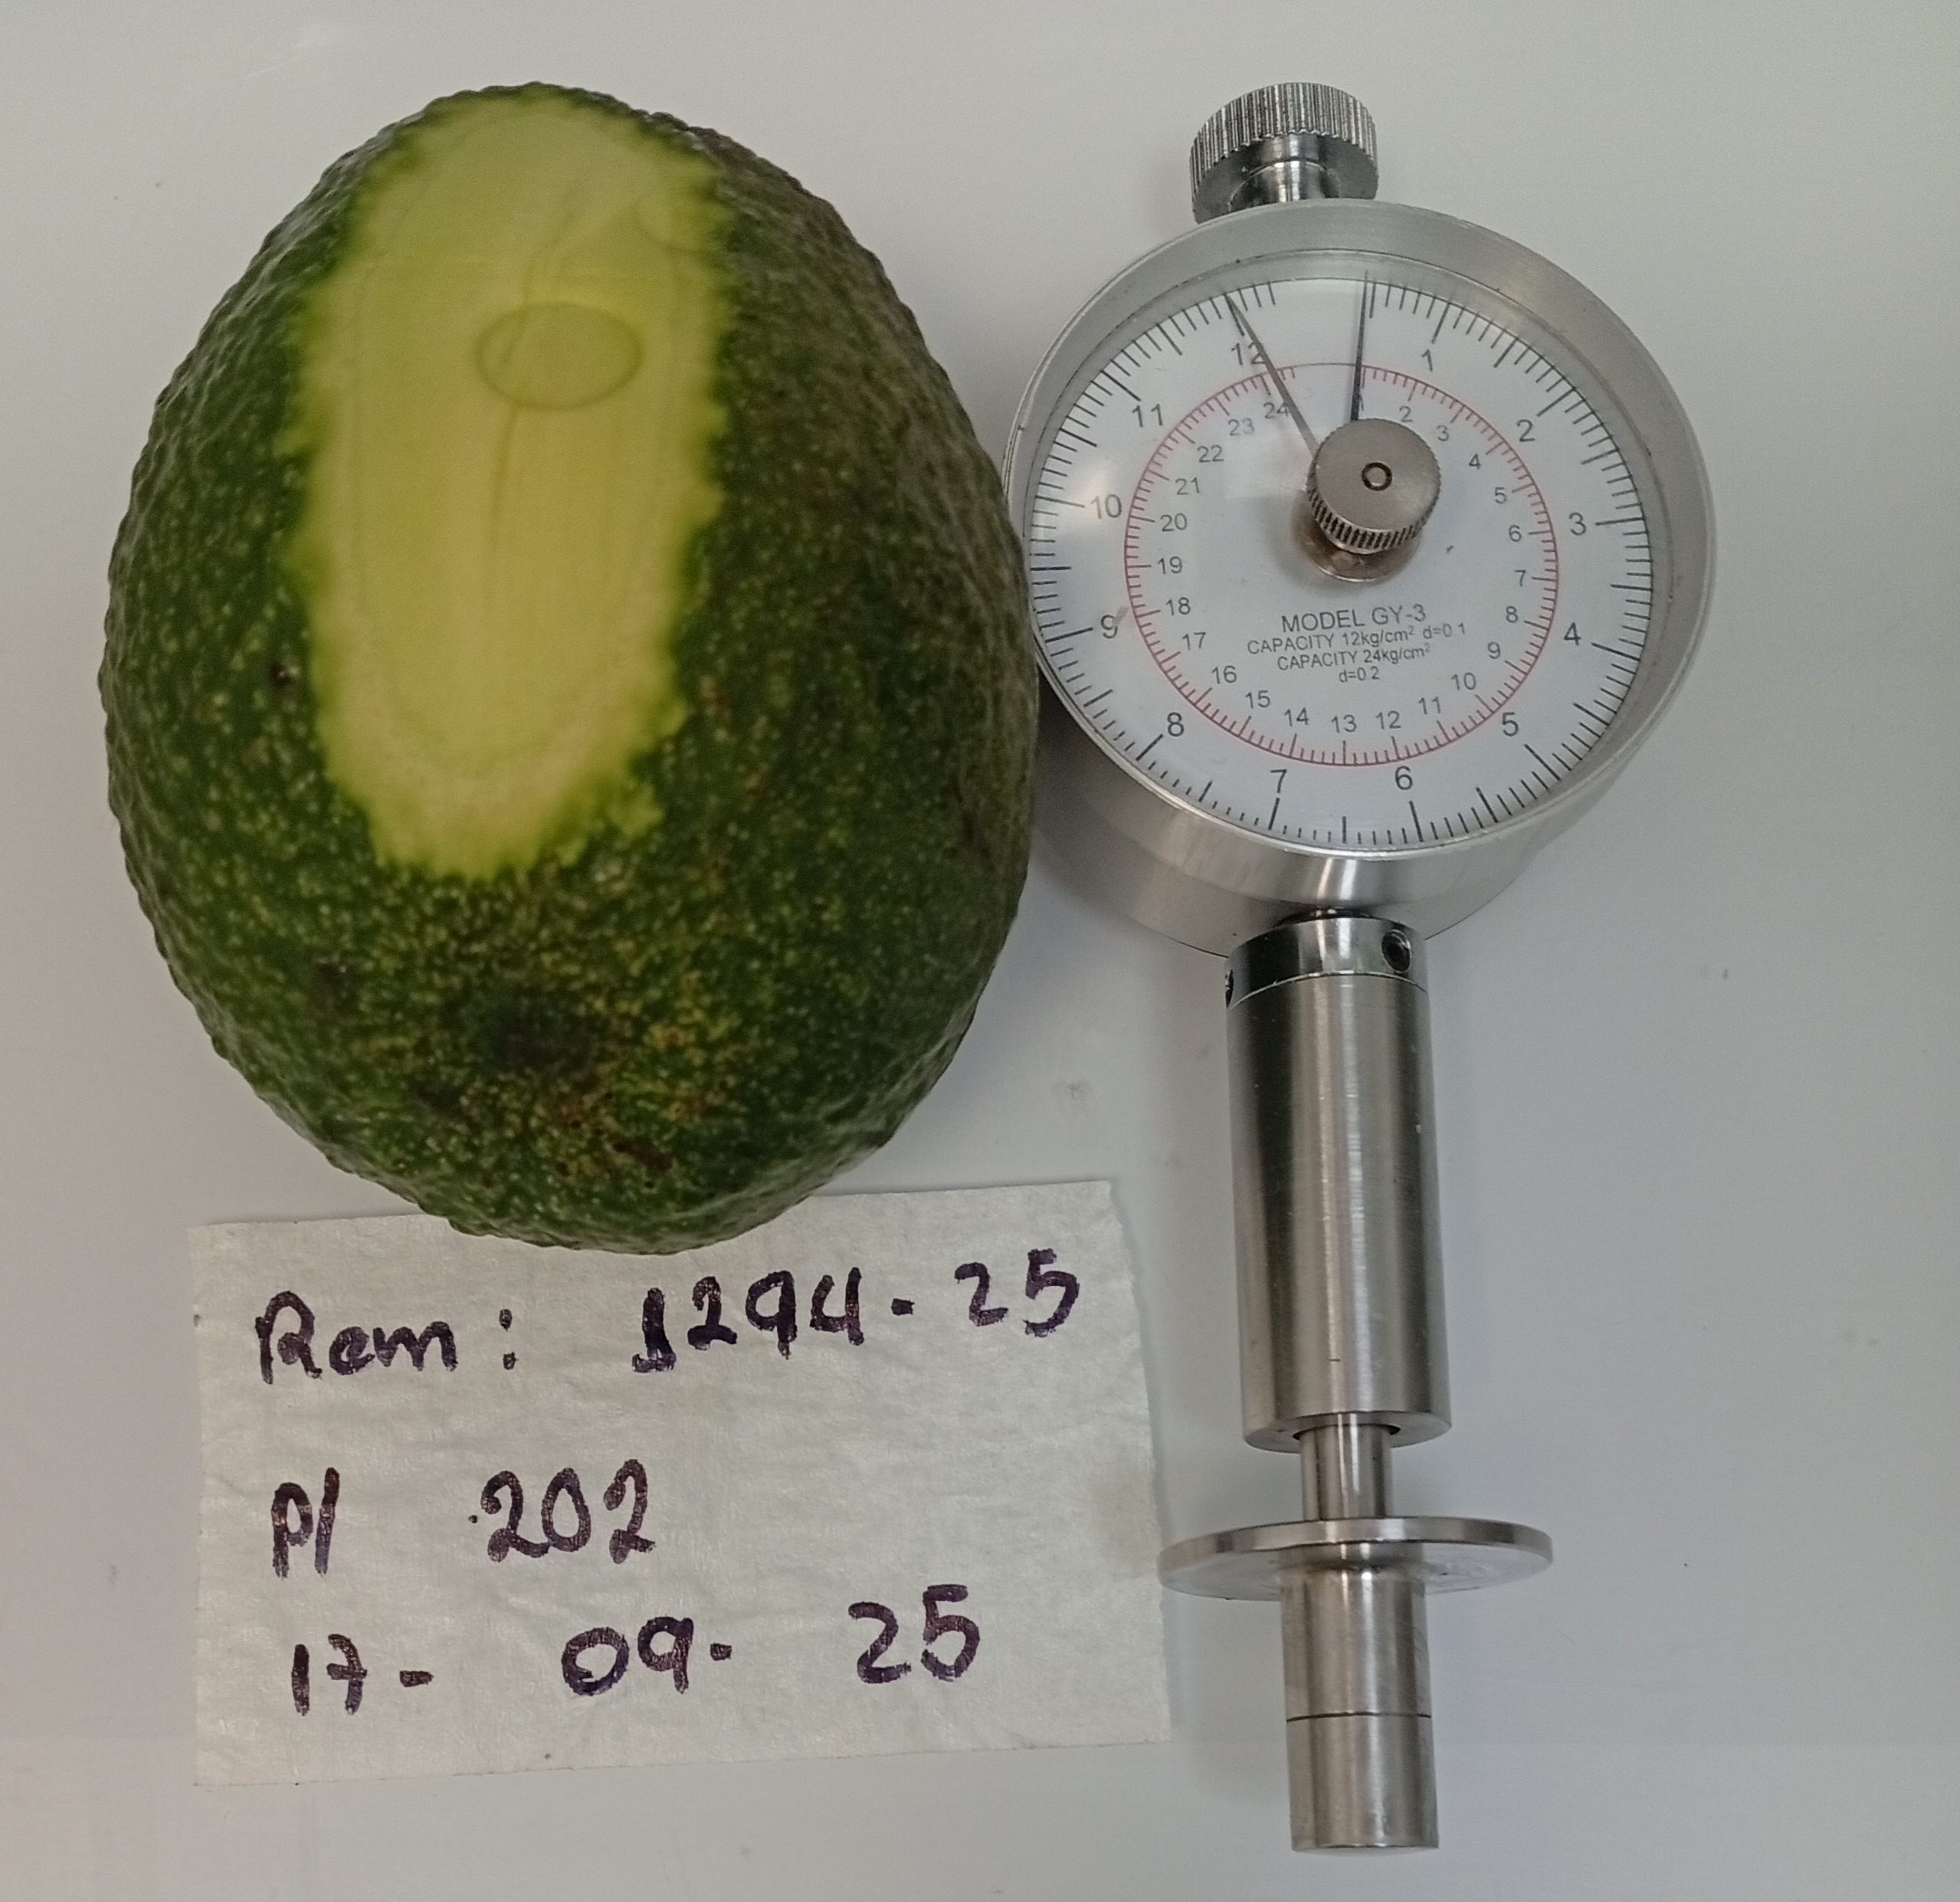 1
2
3
4
5
6
7
8
9
10
11
12
2
3
4
5
6
7
8
9
10
11
12
13
14
15
16
17
18
19
20
21
22
23
24
MODEL GY-3
CAPACITY 12kg/cm² d=0.1
CAPACITY 24kg/cm²
d=0.2
Rem: 1294-25
P/ 202
17- 09- 25